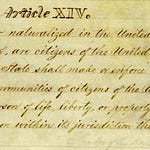 Article XIV.
naturalized in the United
, are citizens of the United
State shall make or enforce
immunities of citizens of the U
son of life, liberty, or property
on within its jurisdiction the